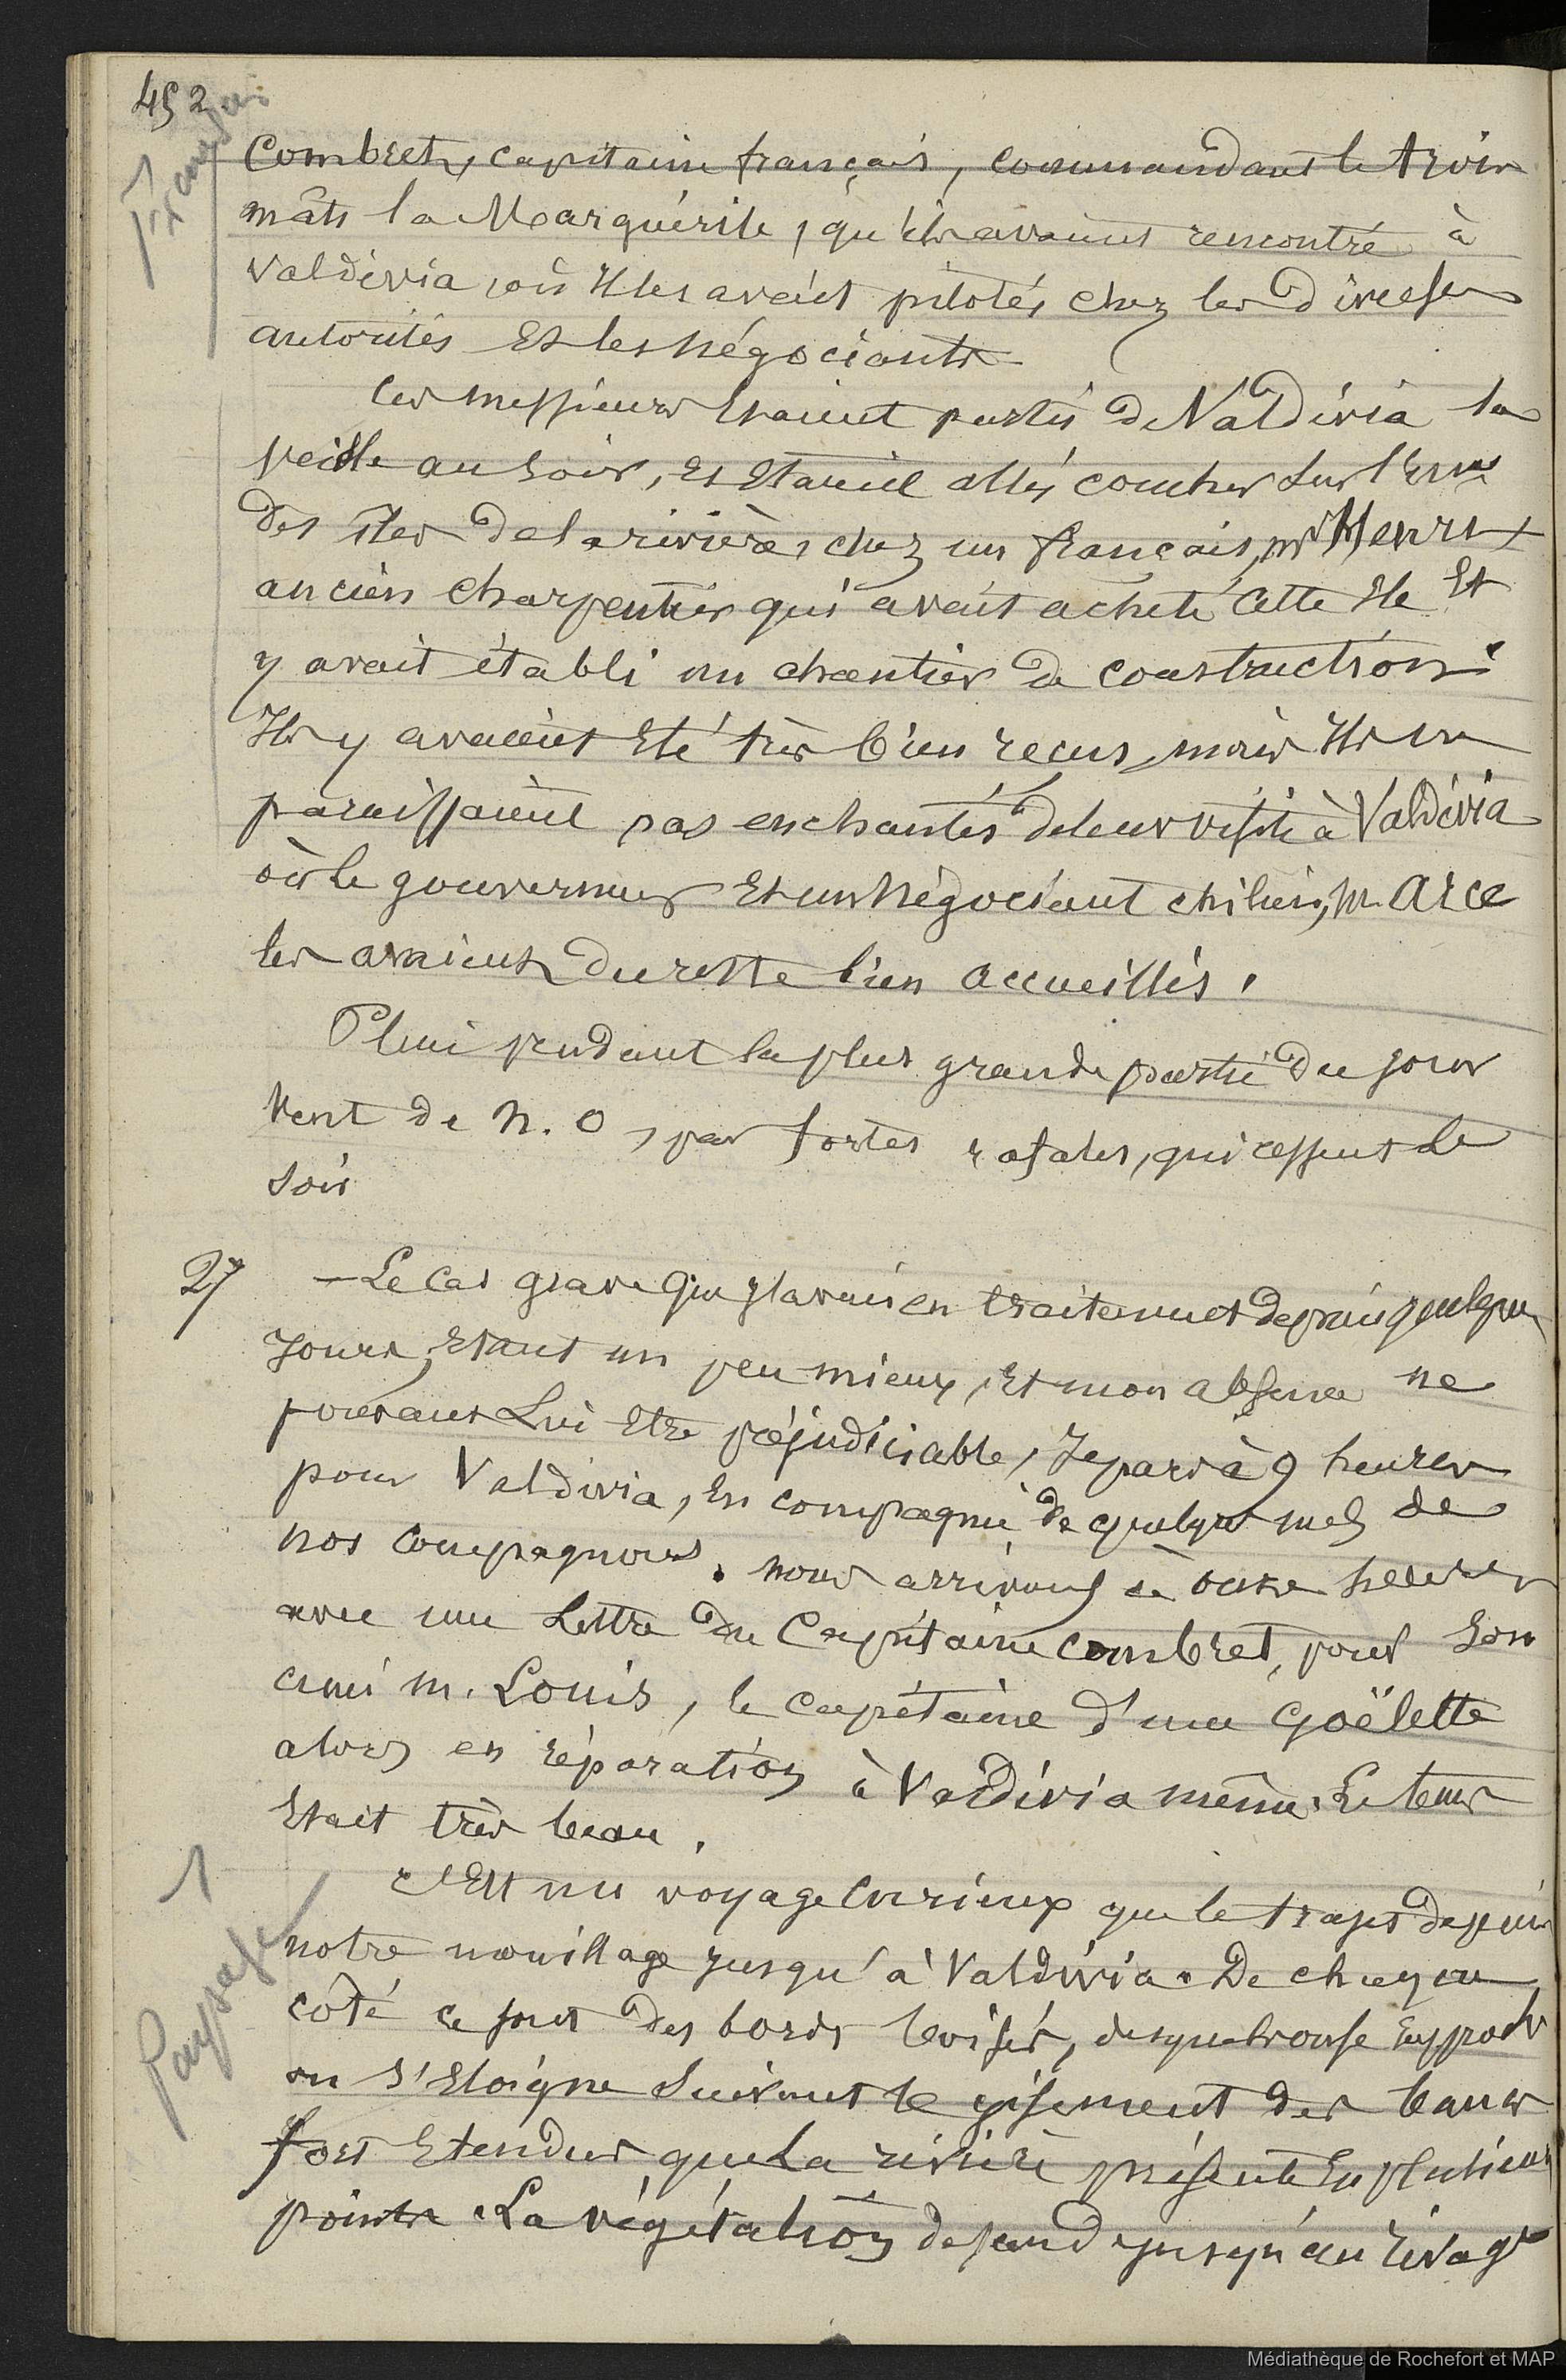 452
Français
Combret, capitaine français, commandant le trois
mâts la Marguérite, qu'ils avaient rencontré à
Valdivia où Il les avait pilotés chez les diverses
autorités Et les négociants
Ces messieurs Etaient partis de Valdivia la
veille au soir, Et Etaient allés coucher sur l'Une
des îles de la rivière, chez un français, mr Henry
ancien charpentier qui avait acheté cette Ile Et
y avait établi un chantier de construction.
Ils y avaient Eté très bien reçus, mais Ils ne
paraissaient pas enchantés de leur visite à Valdivia
où le gouverneur Et un négociant chilien, m. Arce
les avaient du reste bien accueillis.
Pluie pendant la plus grande partie du jour
Vent de N. O, par fortes rafales, qui cessent le
soir
27 — Le cas grave que j'avais en traitement depuis quelques
Jours, Etant un peu mieux, Et mon absence ne
pouvant Lui Etre préjudiciable, Je pars à 9 heures
pour Valdivia, En compagnie de quelques uns de
nos compagnons. nous arrivons à onze heures
avec une Lettre du Capitaine Combret, pour Son
ami m. Louis, le capitaine d'une Goëlette
alors en réparation à Valdivia même. Le temps
Etait très beau.
C'Est un voyage Curieux que le trajet depuis
Paysage
notre mouillage jusqu'à Valdivia. De chaque
côté ce sont des bords boisés, desquels on se rapproche
on s'Eloigne Suivant le gisement des bancs
fort Etendus que La rivière présente En plusieurs
points. La végétation descend jusqu'au rivage
Médiathèque de Rochefort et MAP